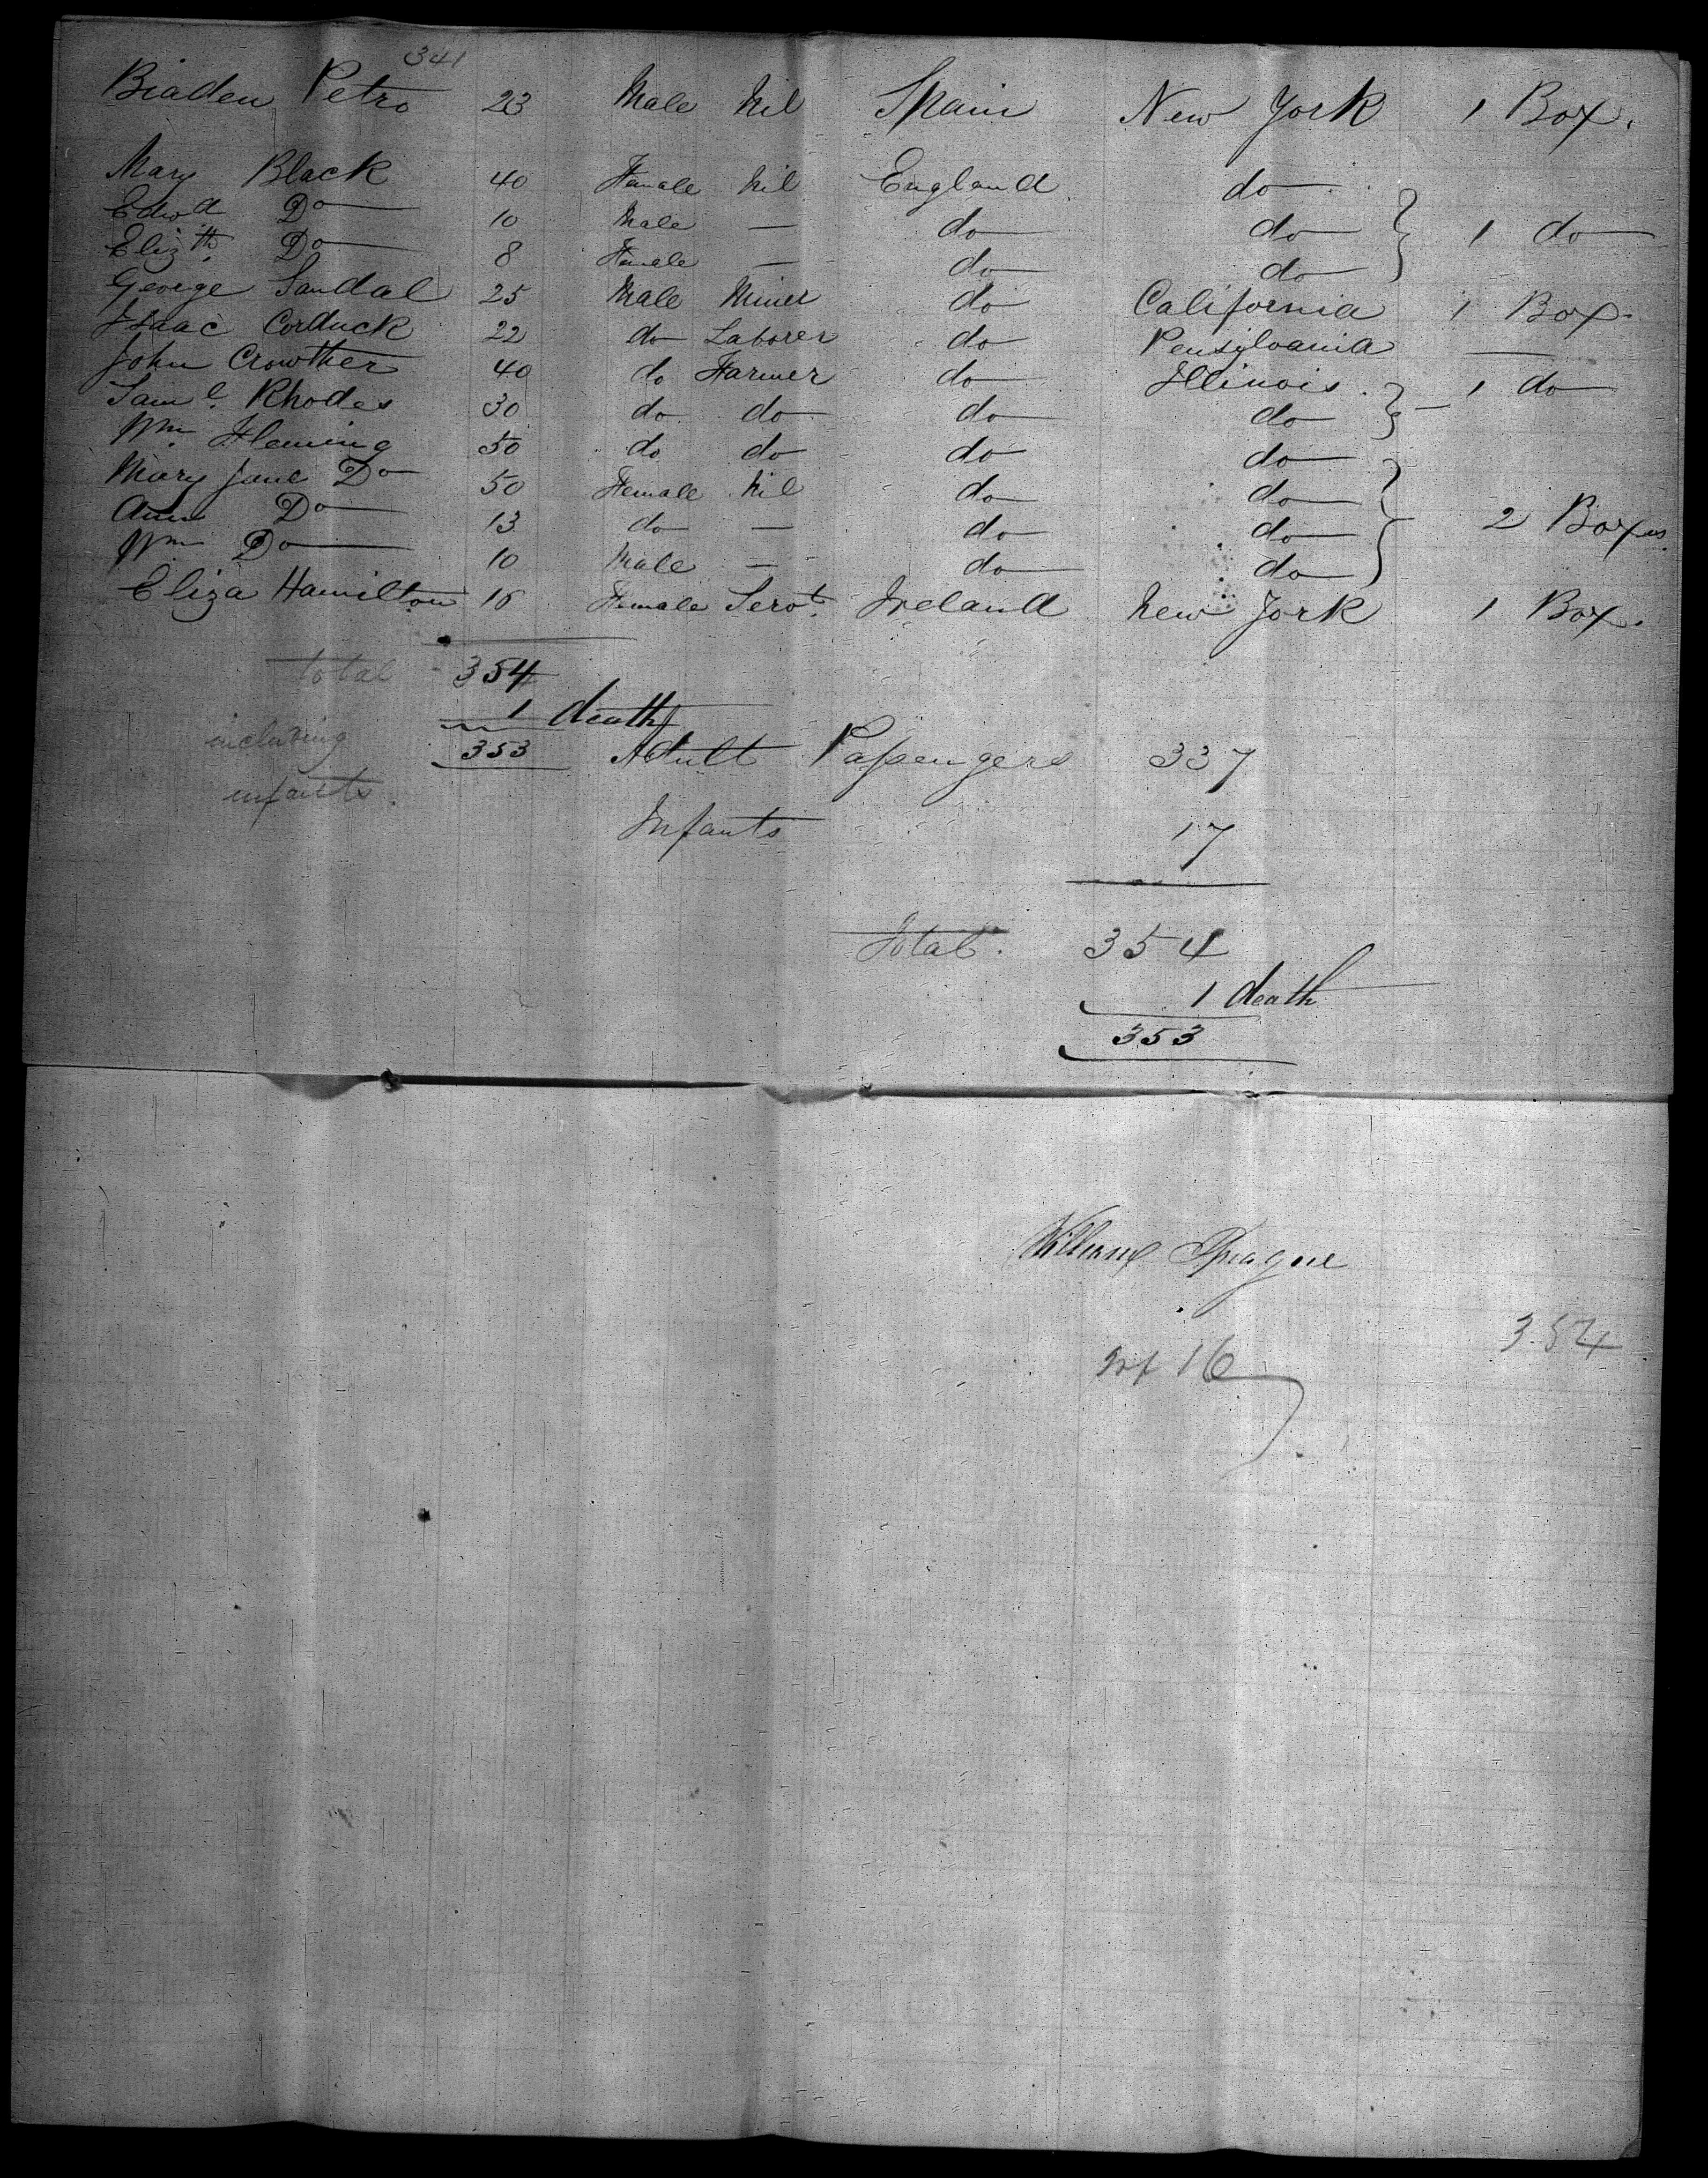 341
Biaden Petro 23 Male Nil Spain New York 1 Box.
Mary Black 40 Female Nil England do
Edwd Do 10 Male — do do 1 do
Elizth Do 8 Female — do do
George Sandal 25 Male Miner do California 1 Box
Isaac Corduck 22 do Laborer do Pensylvania —
John Crowther 40 do Farmer do Illinois 1 do
Saml. Rhodes 30 do do do do
Wm. Fleming 50 do do do do
Mary Jane Do 50 Female Nil do do
Ann Do 13 do — do do 2 Boxes.
Wm Do 10 Male — do do
Eliza Hamilton 16 Female Servt. Ireland New York 1 Box.
total 354
1 death
including 353 Adult Passengers 337
infants.
Infants 17
Total. 354
1 death
353
William Sprague
354
Inf 16